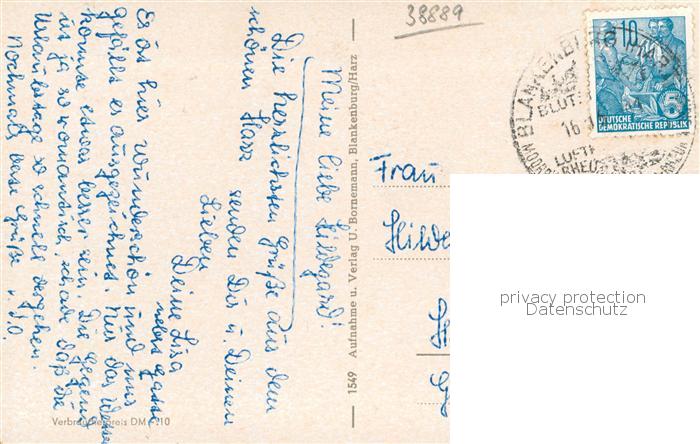 38889
Meine liebe Hildegard!
Die herzlichsten Grüße aus dem
schönen Harz senden Dir u. Deinen
Lieben
Deine Lisa
nebst Gatte
Es ist hier wunderschön und uns
gefällt es ausgezeichnet. Nur das Wetter
könnte etwas besser sein. Die Gegend
ist ja so romantisch, schade daß die
Urlaubstage so schnell vergehen.
Nochmals Grüße v. D.O.
1549 Aufnahme u. Verlag U. Bornemann, Blankenburg/Harz
Verbraucherpreis DM -.10
Frau
Hilde
BLANKENBURG (HARZ)
BLUT
16.
LUFT
RHEU
MOOR
10
5
DEUTSCHE
DEMOKRATISCHE REPUBLIK
privacy protection
Datenschutz